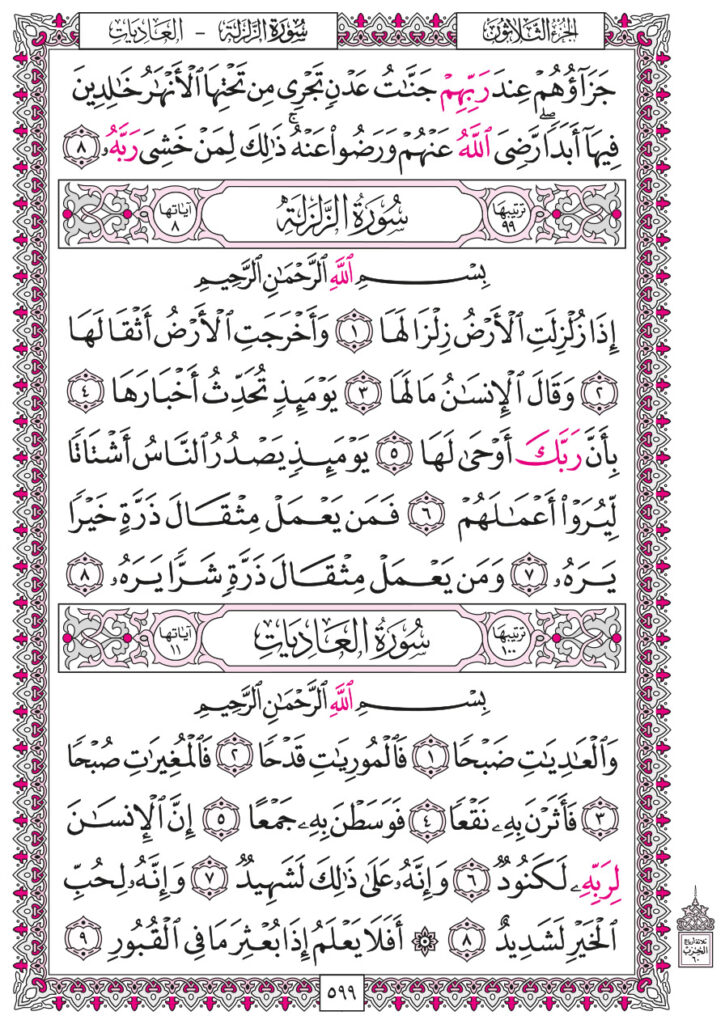 الجزء الثلاثون
سورة الزلزلة - العاديات
جَزَآؤُهُمْ عِندَ رَبِّهِمْ جَنَّٰتُ عَدْنٍ تَجْرِى مِن تَحْتِهَا ٱلْأَنْهَٰرُ خَٰلِدِينَ
فِيهَآ أَبَدًا ۖ رَّضِىَ ٱللَّهُ عَنْهُمْ وَرَضُوا۟ عَنْهُ ۚ ذَٰلِكَ لِمَنْ خَشِىَ رَبَّهُۥ ٨
ترتيبها ٩٩ سُورَةُ الزَّلْزَلَةِ آياتها ٨
بِسْمِ ٱللَّهِ ٱلرَّحْمَٰنِ ٱلرَّحِيمِ
إِذَا زُلْزِلَتِ ٱلْأَرْضُ زِلْزَالَهَا ١ وَأَخْرَجَتِ ٱلْأَرْضُ أَثْقَالَهَا
٢ وَقَالَ ٱلْإِنسَٰنُ مَا لَهَا ٣ يَوْمَئِذٍ تُحَدِّثُ أَخْبَارَهَا ٤
بِأَنَّ رَبَّكَ أَوْحَىٰ لَهَا ٥ يَوْمَئِذٍ يَصْدُرُ ٱلنَّاسُ أَشْتَاتًا
لِّيُرَوْا۟ أَعْمَٰلَهُمْ ٦ فَمَن يَعْمَلْ مِثْقَالَ ذَرَّةٍ خَيْرًا
يَرَهُۥ ٧ وَمَن يَعْمَلْ مِثْقَالَ ذَرَّةٍ شَرًّا يَرَهُۥ ٨
ترتيبها ١٠٠ سُورَةُ العَادِيَاتِ آياتها ١١
بِسْمِ ٱللَّهِ ٱلرَّحْمَٰنِ ٱلرَّحِيمِ
وَٱلْعَٰدِيَٰتِ ضَبْحًا ١ فَٱلْمُورِيَٰتِ قَدْحًا ٢ فَٱلْمُغِيرَٰتِ صُبْحًا
٣ فَأَثَرْنَ بِهِۦ نَقْعًا ٤ فَوَسَطْنَ بِهِۦ جَمْعًا ٥ إِنَّ ٱلْإِنسَٰنَ
لِرَبِّهِۦ لَكَنُودٌ ٦ وَإِنَّهُۥ عَلَىٰ ذَٰلِكَ لَشَهِيدٌ ٧ وَإِنَّهُۥ لِحُبِّ
ٱلْخَيْرِ لَشَدِيدٌ ٨ ۞ أَفَلَا يَعْلَمُ إِذَا بُعْثِرَ مَا فِى ٱلْقُبُورِ ٩
ثلاثة أرباع
الحزب
٦٠
٥٩٩